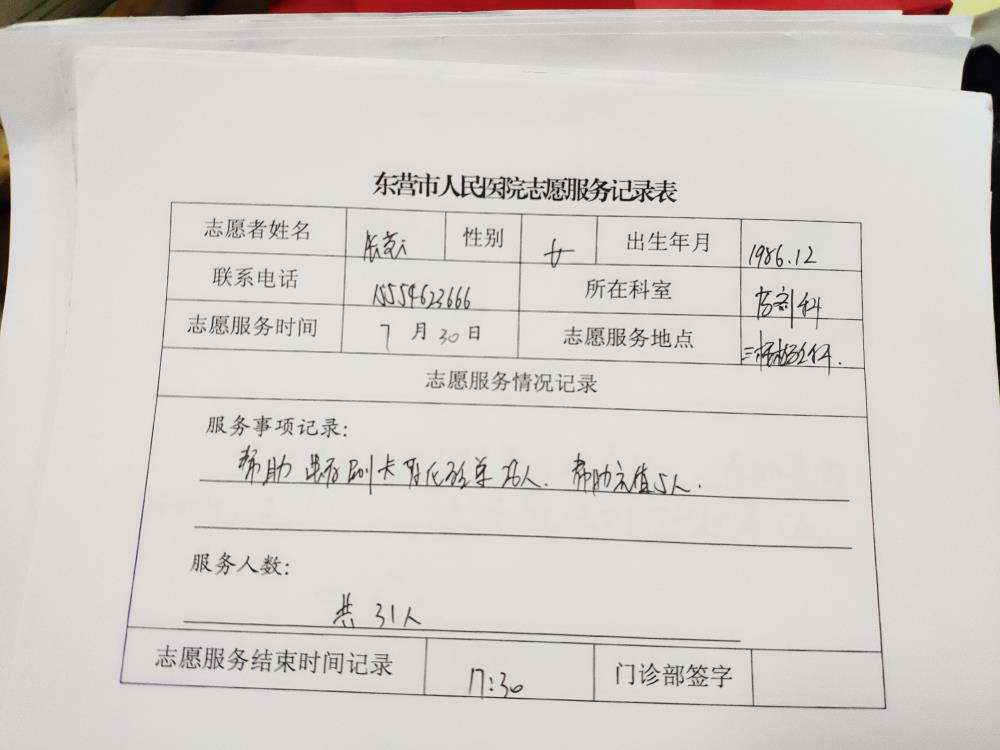 东营市人民医院志愿服务记录表
志愿者姓名 性别 女 出生年月 1986.12
联系电话 15554623666 所在科室 药剂科
志愿服务时间 7月30日 志愿服务地点 三楼
志愿服务情况记录
服务事项记录:
帮助患者刷卡取化验单26人. 帮助充值5人.
服务人数:
共31人
志愿服务结束时间记录 17:30 门诊部签字